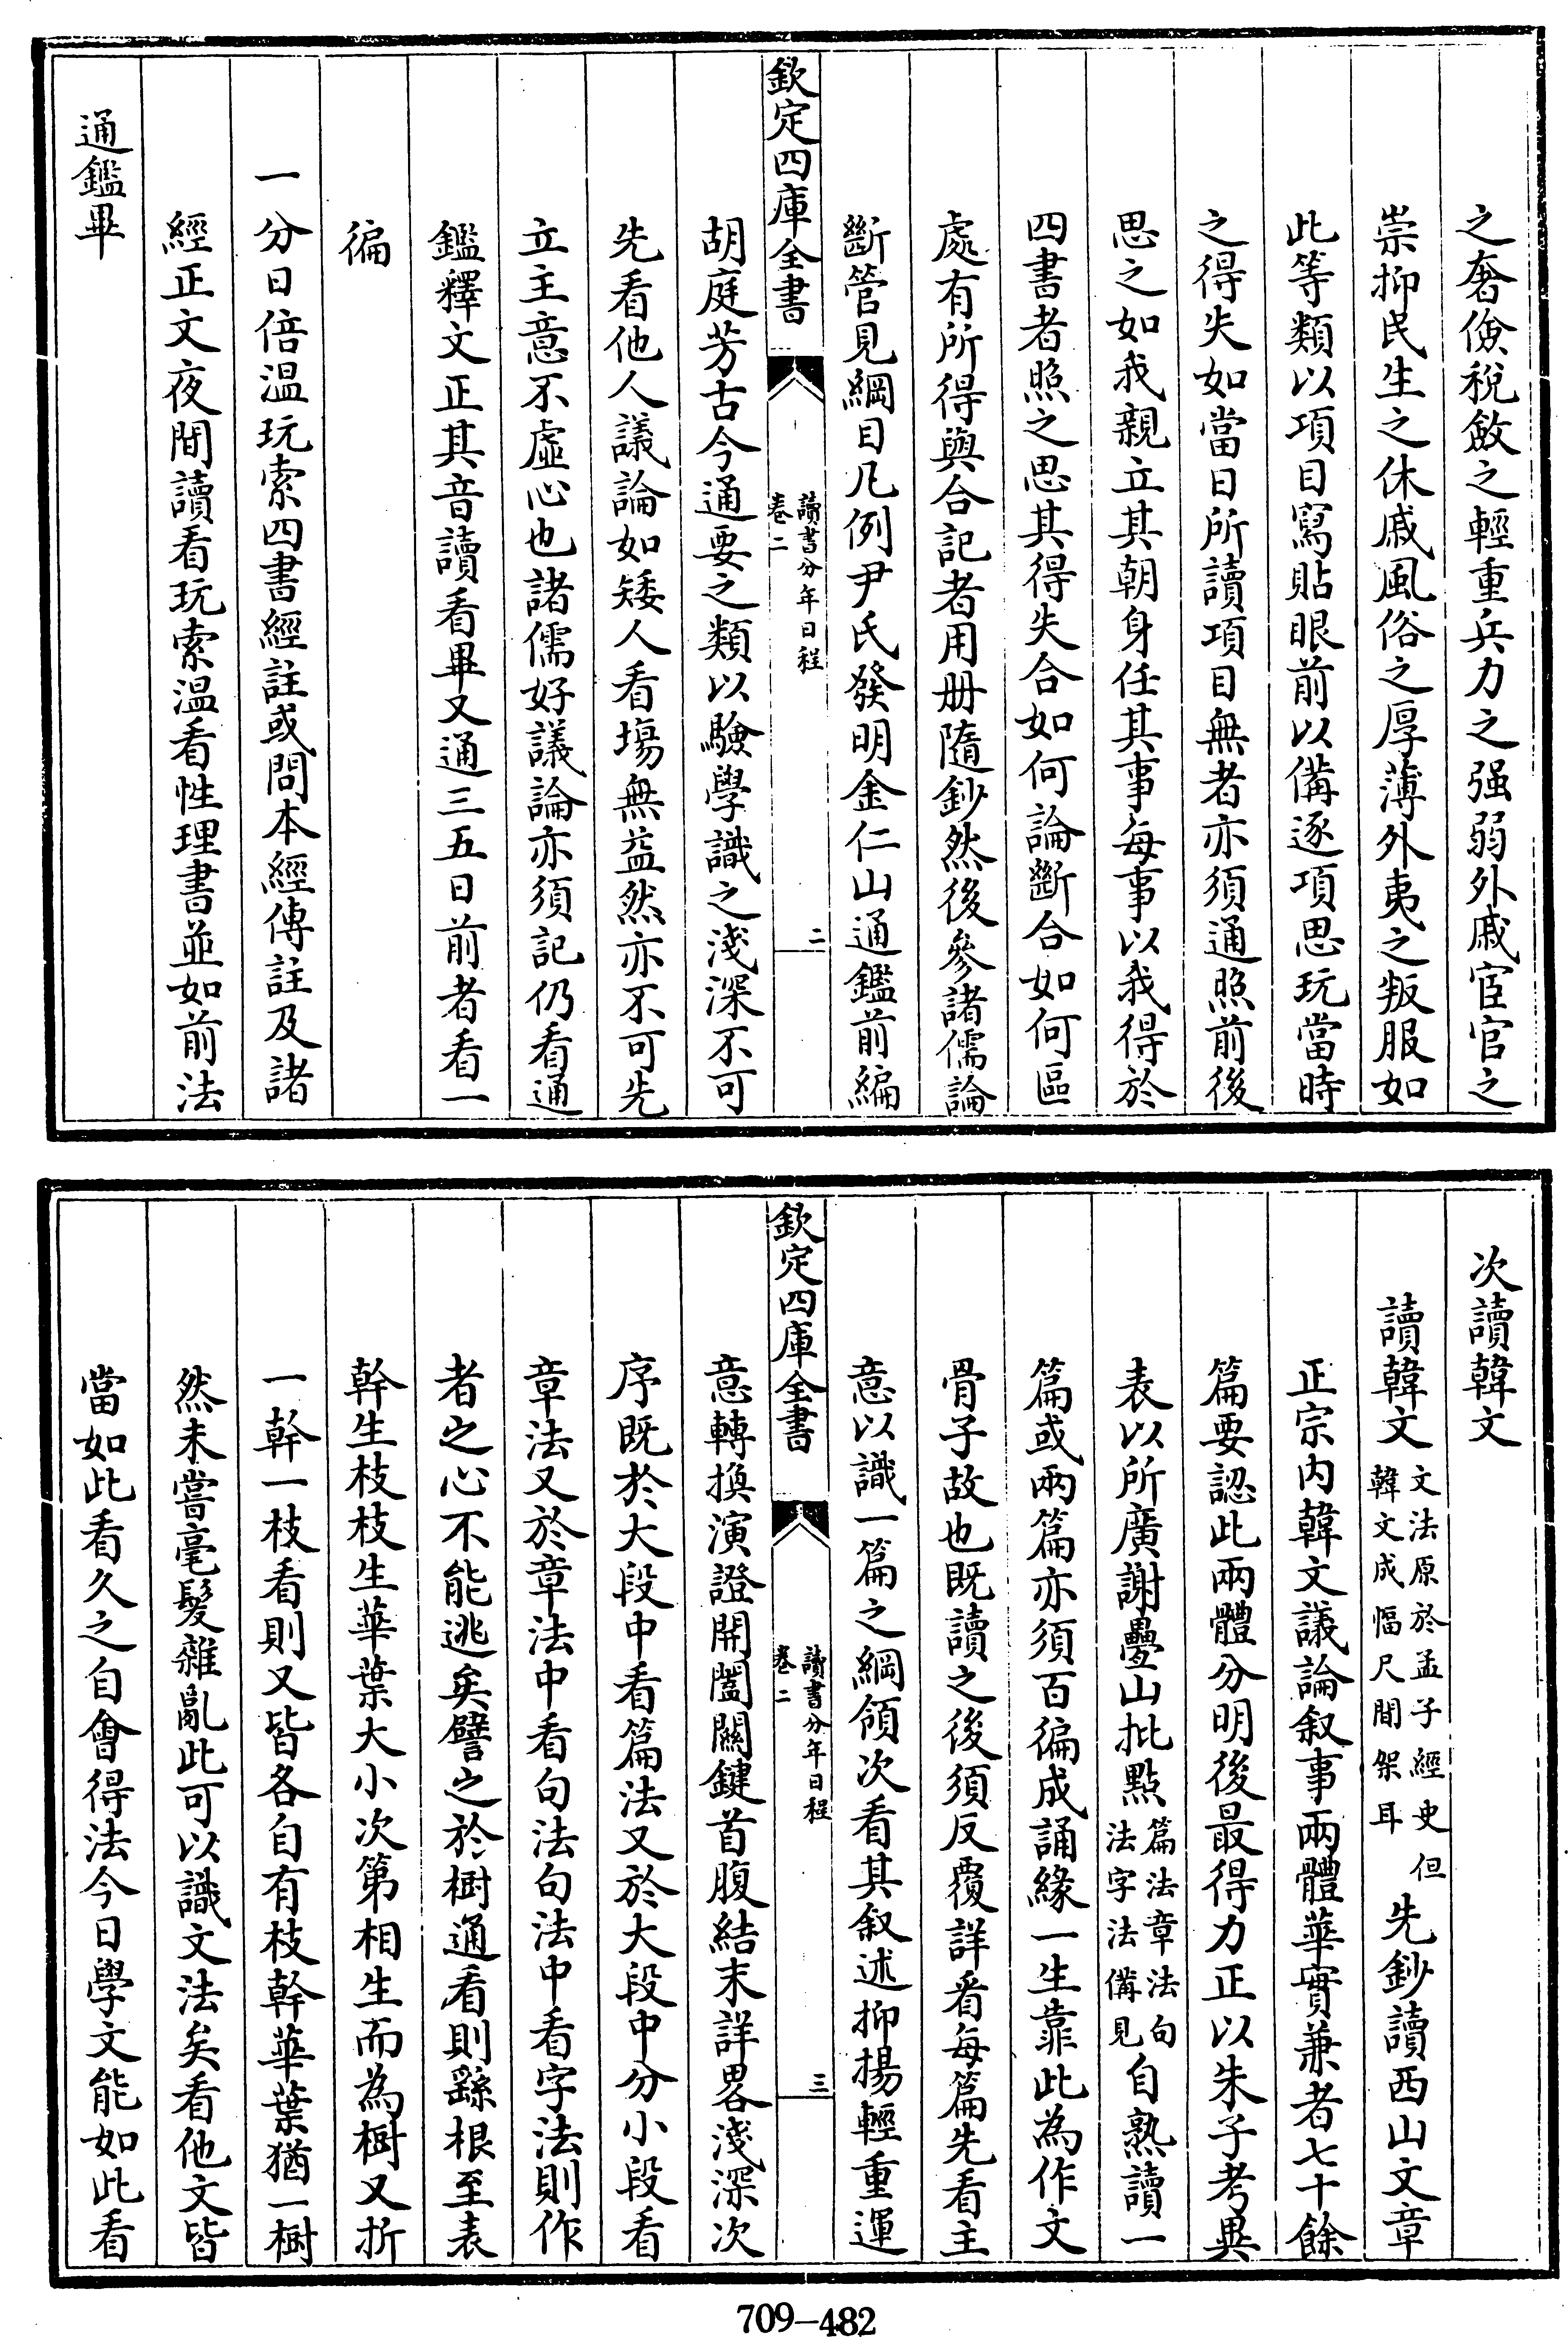 之奢儉稅斂之輕重兵力之强弱外戚宦官之
崇抑民生之休戚風俗之厚薄外夷之叛服如
此等類以項目寫貼眼前以備逐項思玩當時
之得失如當日所讀項目無者亦須通照前後
思之如我親立其朝身任其事每事以我得於
四書者照之思其得失合如何論斷合如何區
處有所得與合記者用册隨鈔然後參諸儒論
斷管見綱目凡例尹氏發明金仁山通鑑前編
欽定四庫全書
讀書分年日程
卷二
二
胡庭芳古今通要之類以驗學識之淺深不可
先看他人議論如矮人看場無益然亦不可先
立主意不虛心也諸儒好議論亦須記仍看通
鑑釋文正其音讀看畢又通三五日前者看一
徧
一分日倍温玩索四書經註或問本經傳註及諸
經正文夜間讀看玩索温看性理書並如前法
通鑑畢
次讀韓文
讀韓文
文法原於孟子經史但
韓文成幅尺間架耳
先鈔讀西山文章
正宗内韓文議論叙事兩體華實兼者七十餘
篇要認此兩體分明後最得力正以朱子考異
表以所廣謝疊山批點
篇法章法句
法字法備見
自熟讀一
篇或兩篇亦須百徧成誦緣一生靠此為作文
骨子故也既讀之後須反覆詳看每篇先看主
意以識一篇之綱領次看其叙述抑揚輕重運
欽定四庫全書
讀書分年日程
卷二
三
意轉換演證開闔關鍵首腹結末詳畧淺深次
序既於大段中看篇法又於大段中分小段看
章法又於章法中看句法句法中看字法則作
者之心不能逃矣譬之於樹通看則繇根至表
幹生枝枝生華葉大小次第相生而為樹又折
一幹一枝看則又皆各自有枝幹華葉猶一樹
然未嘗毫髮雜亂此可以識文法矣看他文皆
當如此看久之自會得法今日學文能如此看
709-482